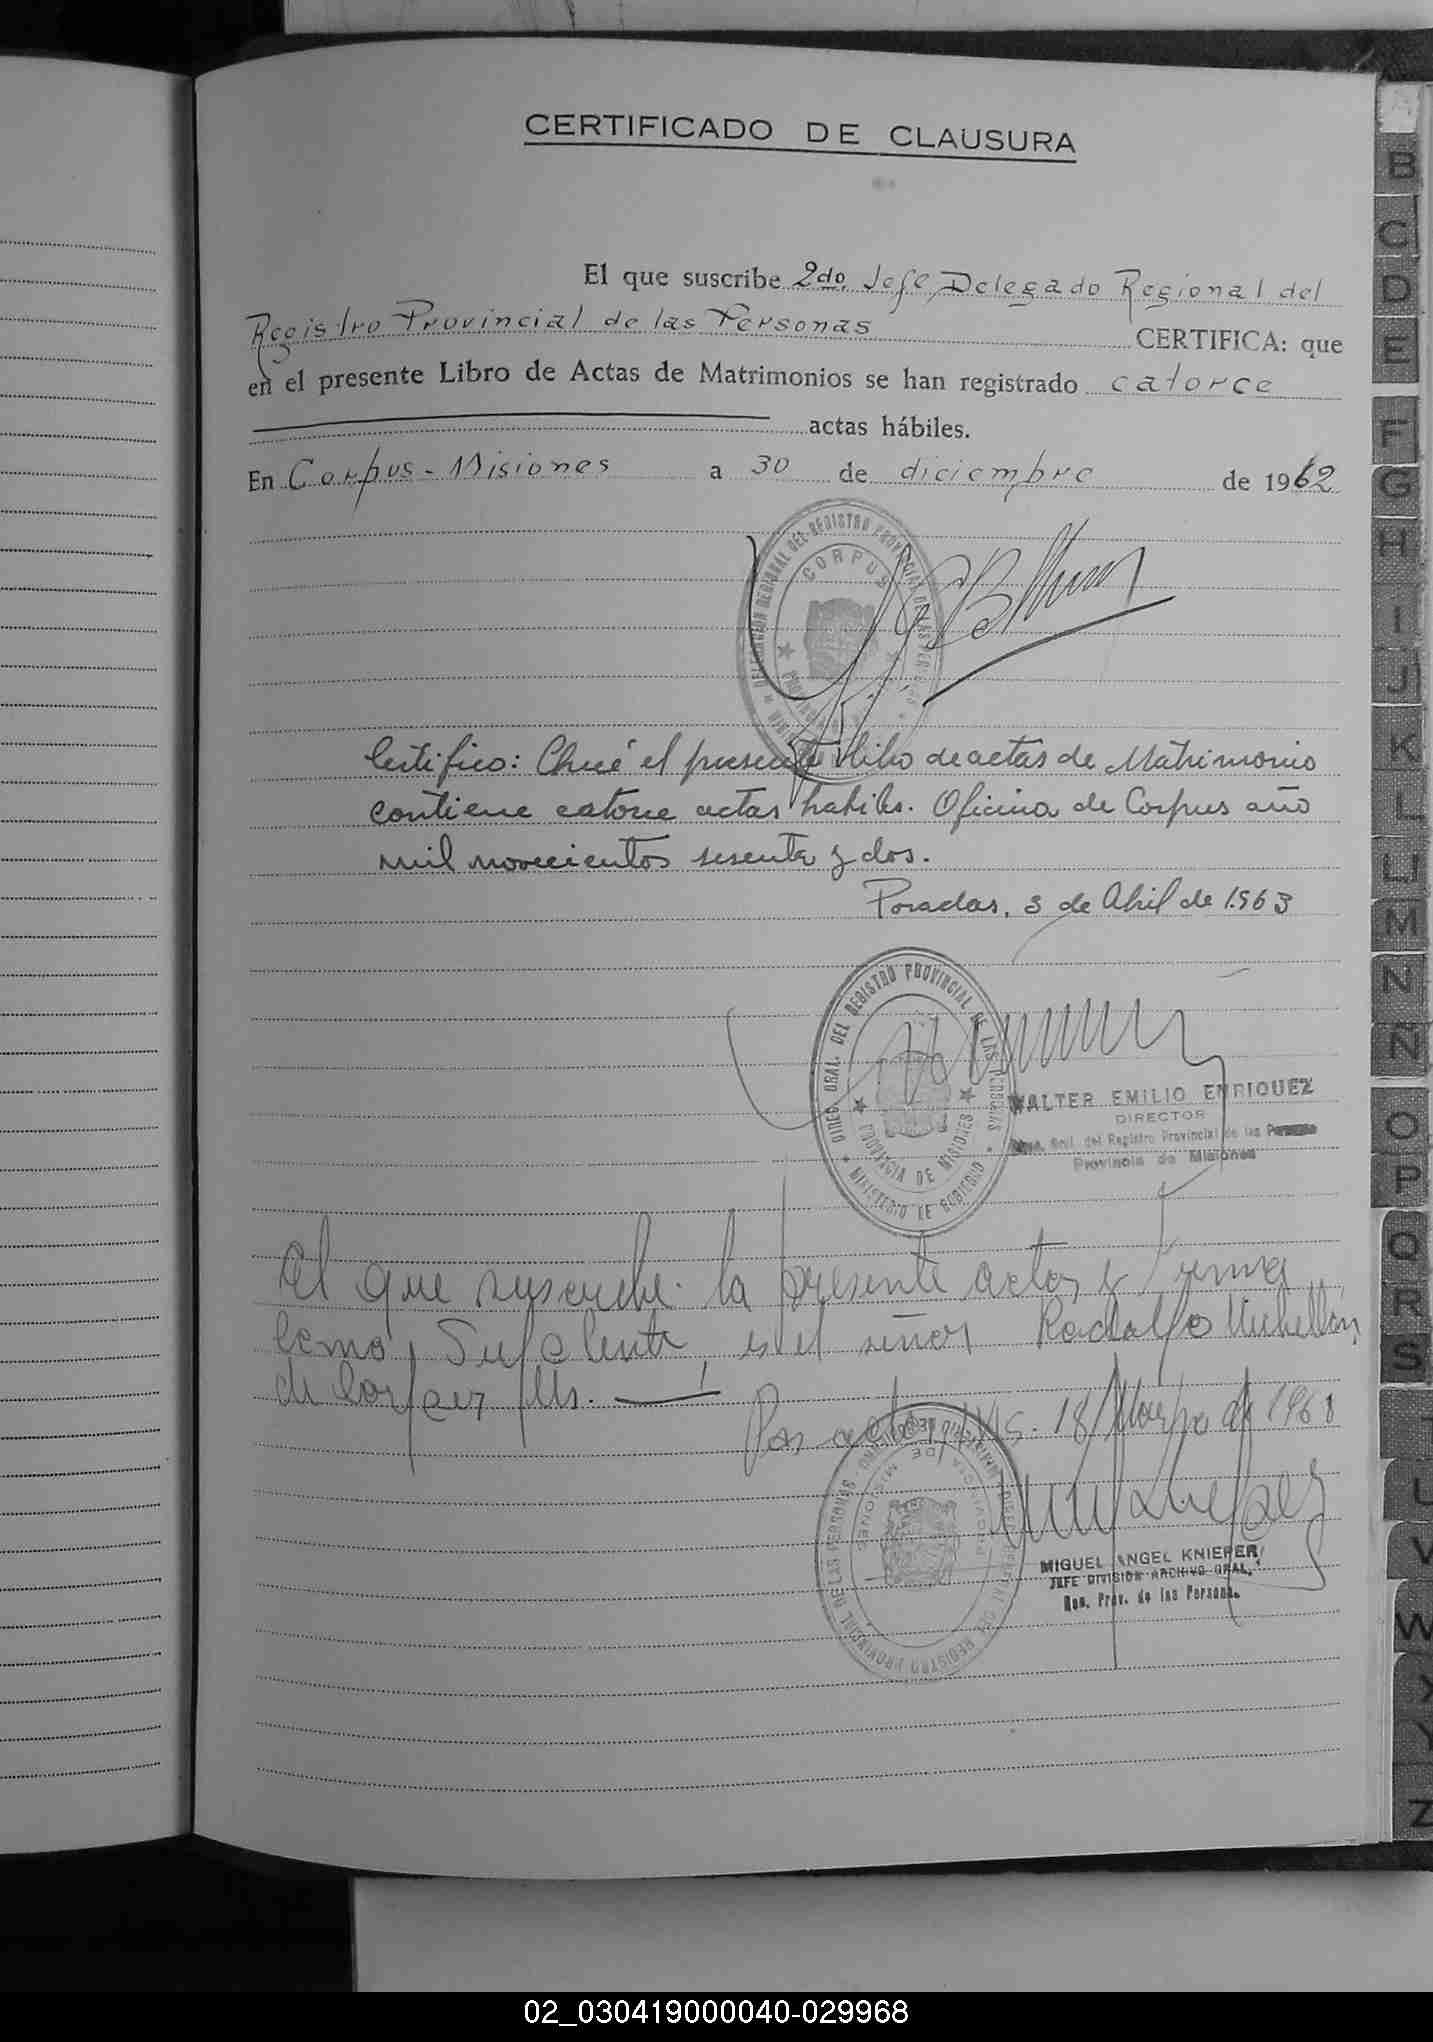 CERTIFICADO DE CLAUSURA
El que suscribe 2do. Jefe Delegado Regional del
Registro Provincial de las Personas CERTIFICA: que
en el presente Libro de Actas de Matrimonios se han registrado catorce
actas hábiles.
En Corpus - Misiones a 30 de diciembre de 1962
DELEGACION REGIONAL DEL REGISTRO PROVINCIAL DE LAS PERSONAS
CORPUS
Certifico: Que el presente libro de actas de Matrimonio
contiene catorce actas habiles. Oficina de Corpus año
mil novecientos sesenta y dos.
Posadas, 3 de Abril de 1963
DIREC. GRAL. DEL REGISTRO PROVINCIAL DE LAS PERSONAS
PROVINCIA DE MISIONES
MINISTERIO DE GOBIERNO
WALTER EMILIO ENRIQUEZ
DIRECTOR
Gral. del Registro Provincial de las Personas
Provincia de Misiones
El que suscribe la presente actas y firma
como Suplente, es el señor Rodolfo
de Corpus Ms.
Posadas, MS. 18 Marzo de 196
PROVINCIA DE MISIONES
REGISTRO PROVINCIAL DE LAS PERSONAS
MIGUEL ANGEL KNIEPER
JEFE DIVISION ARCHIVO GRAL.
Reg. Prov. de las Personas
B
C
D
E
F
G
H
I
J
K
L
LL
M
N
Ñ
O
P
Q
R
S
T
U
V
W
X
Y
Z
02_030419000040-029968